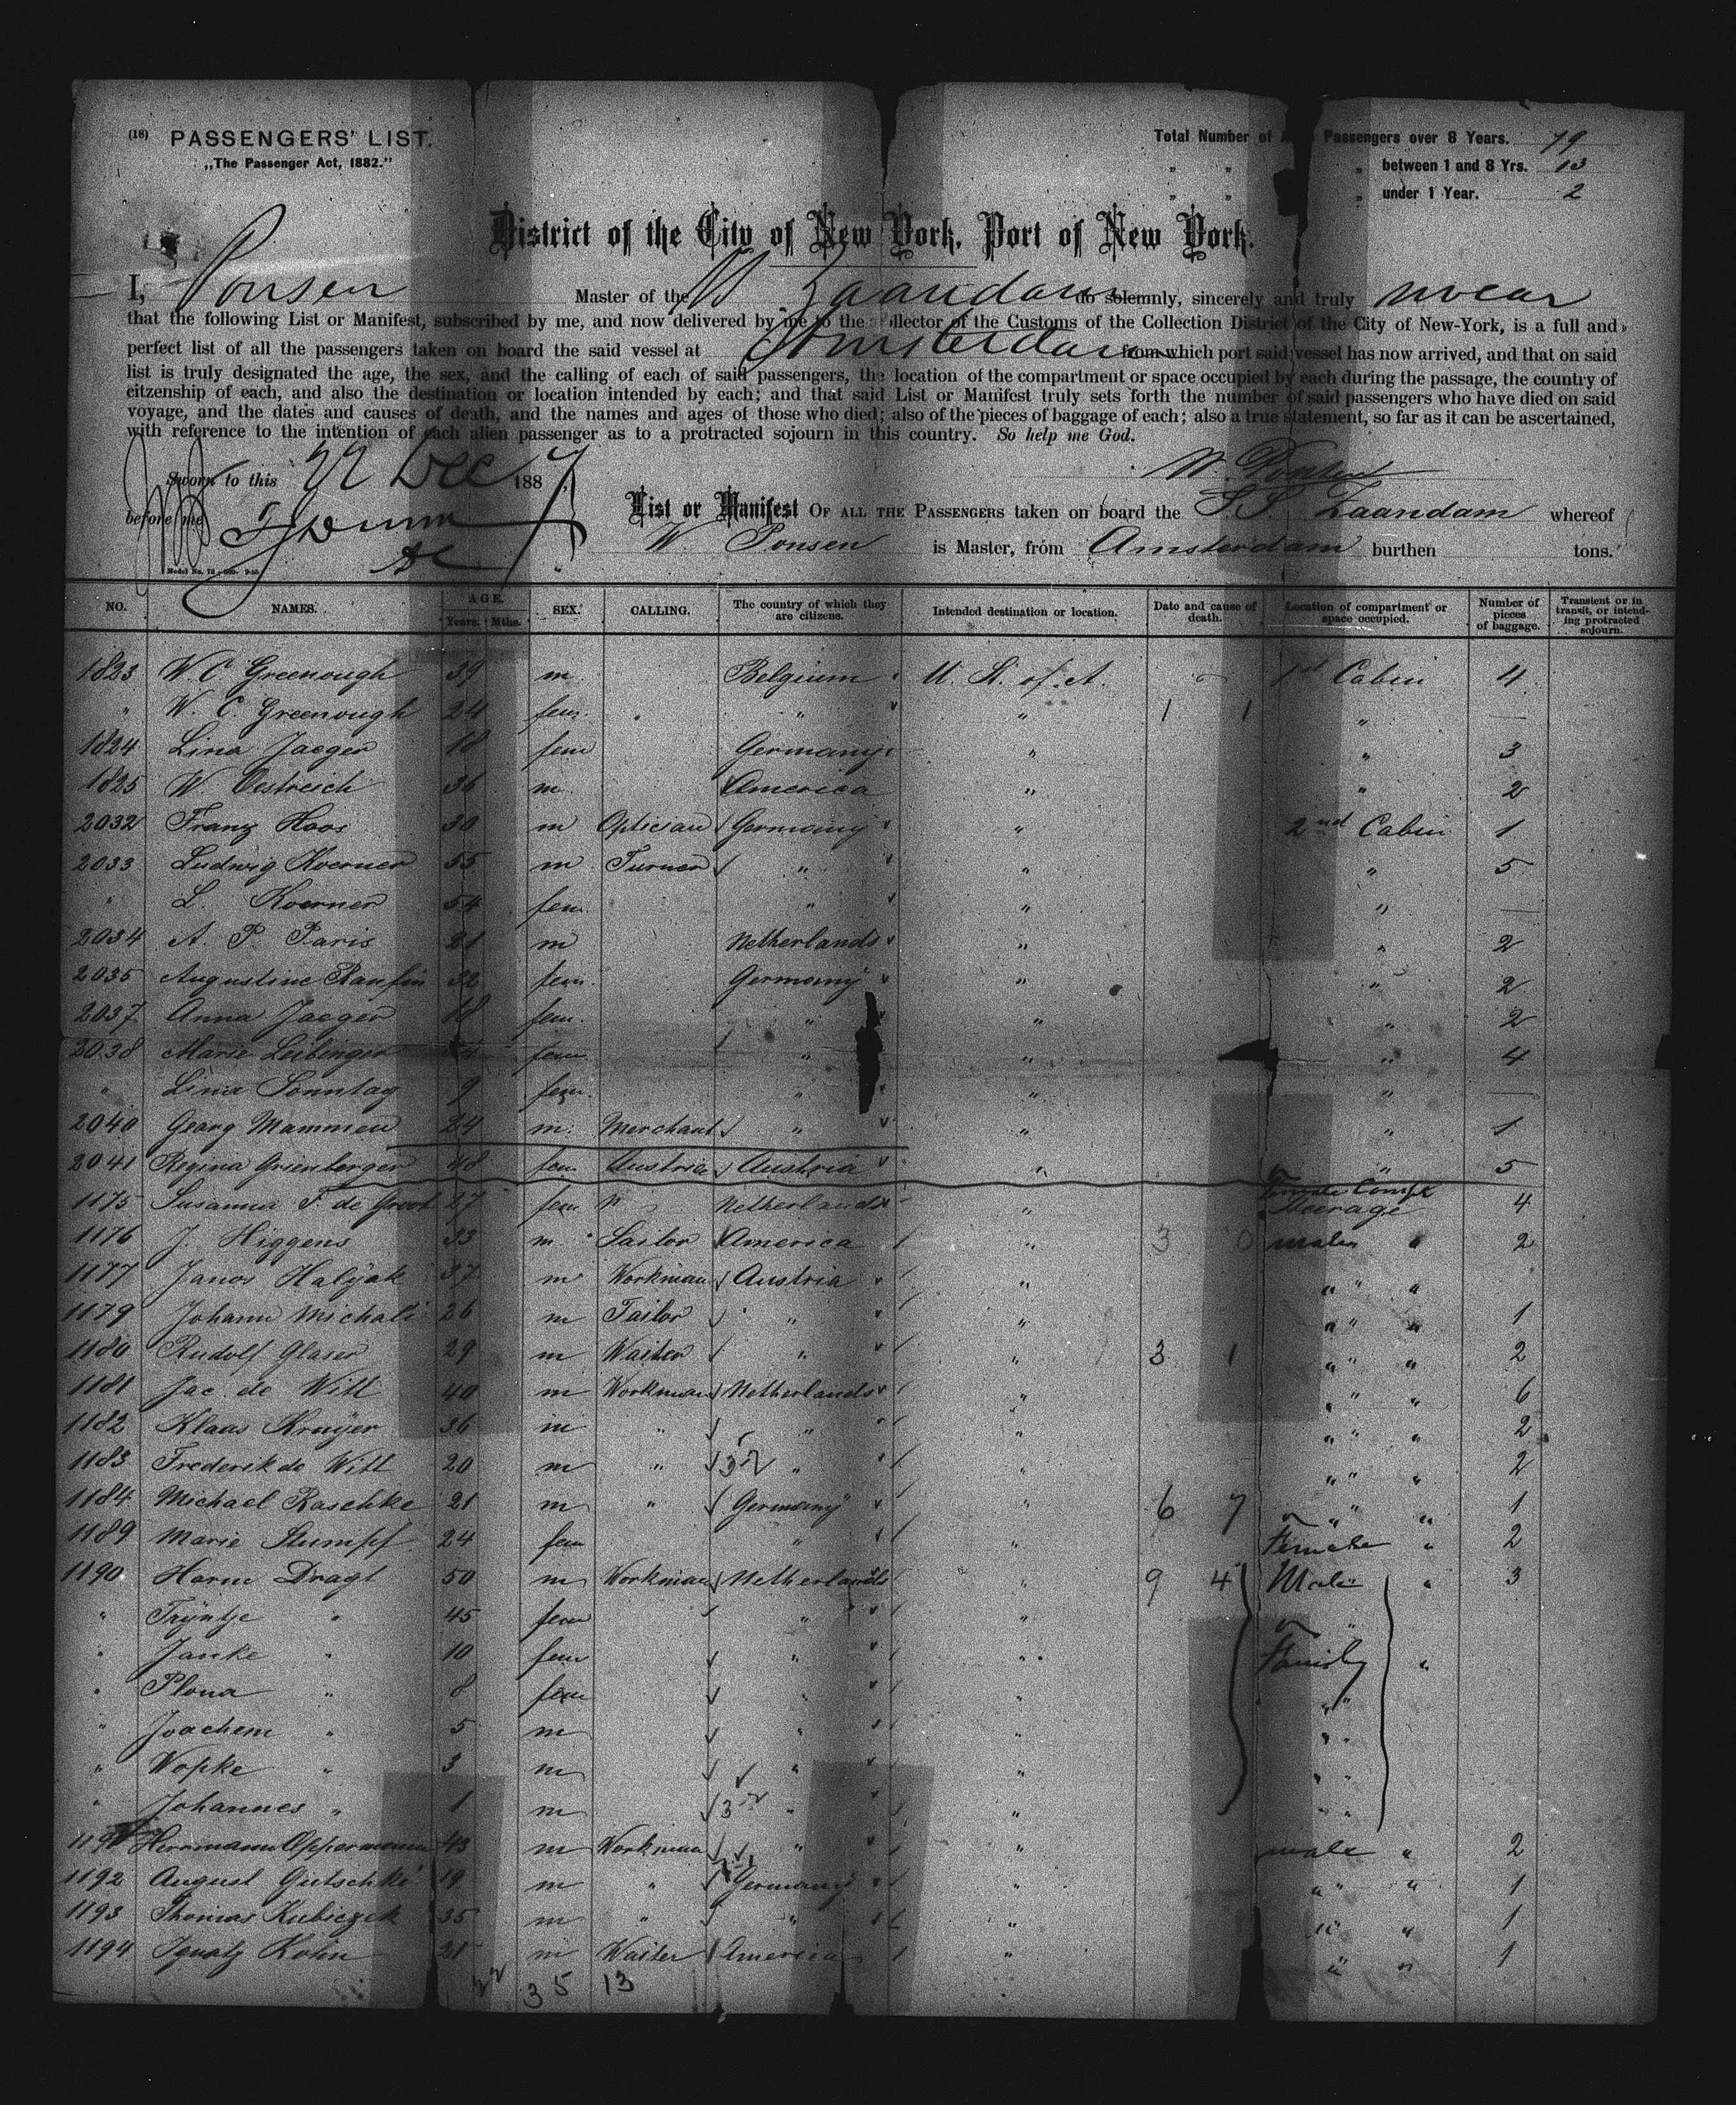 (18) PASSENGERS' LIST.
„The Passenger Act, 1882."
Total Number of Passengers over 8 Years. 79
„ „ „ between 1 and 8 Yrs. 13
„ „ „ under 1 Year. 2
District of the City of New York, Port of New York.
I, Ponsen Master of the Zaandam do solemnly, sincerely and truly swear
that the following List or Manifest, subscribed by me, and now delivered by me to the Collector of the Customs of the Collection District of the City of New-York, is a full and
perfect list of all the passengers taken on board the said vessel at Amsterdam from which port said vessel has now arrived, and that on said
list is truly designated the age, the sex, and the calling of each of said passengers, the location of the compartment or space occupied by each during the passage, the country of
citzenship of each, and also the destination or location intended by each; and that said List or Manifest truly sets forth the number of said passengers who have died on said
voyage, and the dates and causes of death, and the names and ages of those who died; also of the pieces of baggage of each; also a true statement, so far as it can be ascertained,
with reference to the intention of each alien passenger as to a protracted sojourn in this country. So help me God.
W. Ponsen
Sworn to this 22 Dec 1887
before me
List or Manifest OF ALL THE PASSENGERS taken on board the S.S. Zaandam whereof
W. Ponsen is Master, from Amsterdam burthen tons.
NO. NAMES. AGE. Years. Mths. SEX. CALLING. The country of which they are citizens. Intended destination or location. Date and cause of death. Location of compartment or space occupied. Number of pieces of baggage. Transient or in transit, or intending protracted sojourn.
1823 W. C. Greenough 39 m. Belgium U. S. of A. 1st Cabin 4
„ W. C. Greenough 24 fem. „ „ 1 1 „ —
1824 Lina Jaeger 18 fem Germany „ „ 3
1825 W Oestreich 36 m. America „ „ 2
2032 Franz Hoos 30 m Optician Germany „ 2nd Cabin 1
2033 Ludwig Koerner 55 m Turner „ „ „ 5
„ L. Koerner 54 fem. „ „ „ —
2034 A. P. Paris 21 m Netherlands „ „ 2
2035 Augustine 32 fem. Germany „ „ 2
2037 Anna Jaeger 18 fem. „ „ „ 2
2038 Marie Leibinger fem „ „ „ 4
„ Lina Sonntag 9 fem. „ „ „ —
2040 Georg Mammen 24 m. Merchant „ „ „ 1
2041 Regina Grienberger 48 fem Austria Austria „ „ 5
1175 Susanna F. de Groot 27 fem Netherlands „ Steerage 4
1176 J. Higgens 33 m. Sailor America „ 3 0 male „ 2
1177 Janos Halijak 37 m Workman Austria „ „ „
1179 Johann Michali 26 m Tailor „ „ „ „ 1
1180 Rudolf Glaser 29 m Waiter „ „ 3 1 „ „ 2
1181 Jac. de Witt 40 m Workman Netherlands „ „ „ 6
1182 Klaas Kruijer 36 m „ „ „ „ „ 2
1183 Frederik de Witt 20 m „ „ „ „ „ 2
1184 Michael Raschke 21 m „ Germany „ 6 7 „ „ 1
1189 Marie Stumpf 24 fem „ „ Female „ 2
1190 Harm Dragt 50 m Workman Netherlands „ 9 4 Male „ 3
„ Trijntje „ 45 fem „ „ „
„ Janke „ 10 fem „ „ Family „
„ Plona „ 8 fem „ „ „
„ Joachem „ 5 m „ „ „
„ Wopke „ 3 m „ „ „
„ Johannes „ 1 m „ „ „
1191 Herrmann Oppermann 43 m Workman „ „ male „ 2
1192 August Gutschke 19 m „ Germany „ „ „ 1
1193 Thomas Kubiczek 35 m „ „ „ „ „ 1
1194 Ignatz Kohn 21 m Waiter America „ „ „ 1
35 13